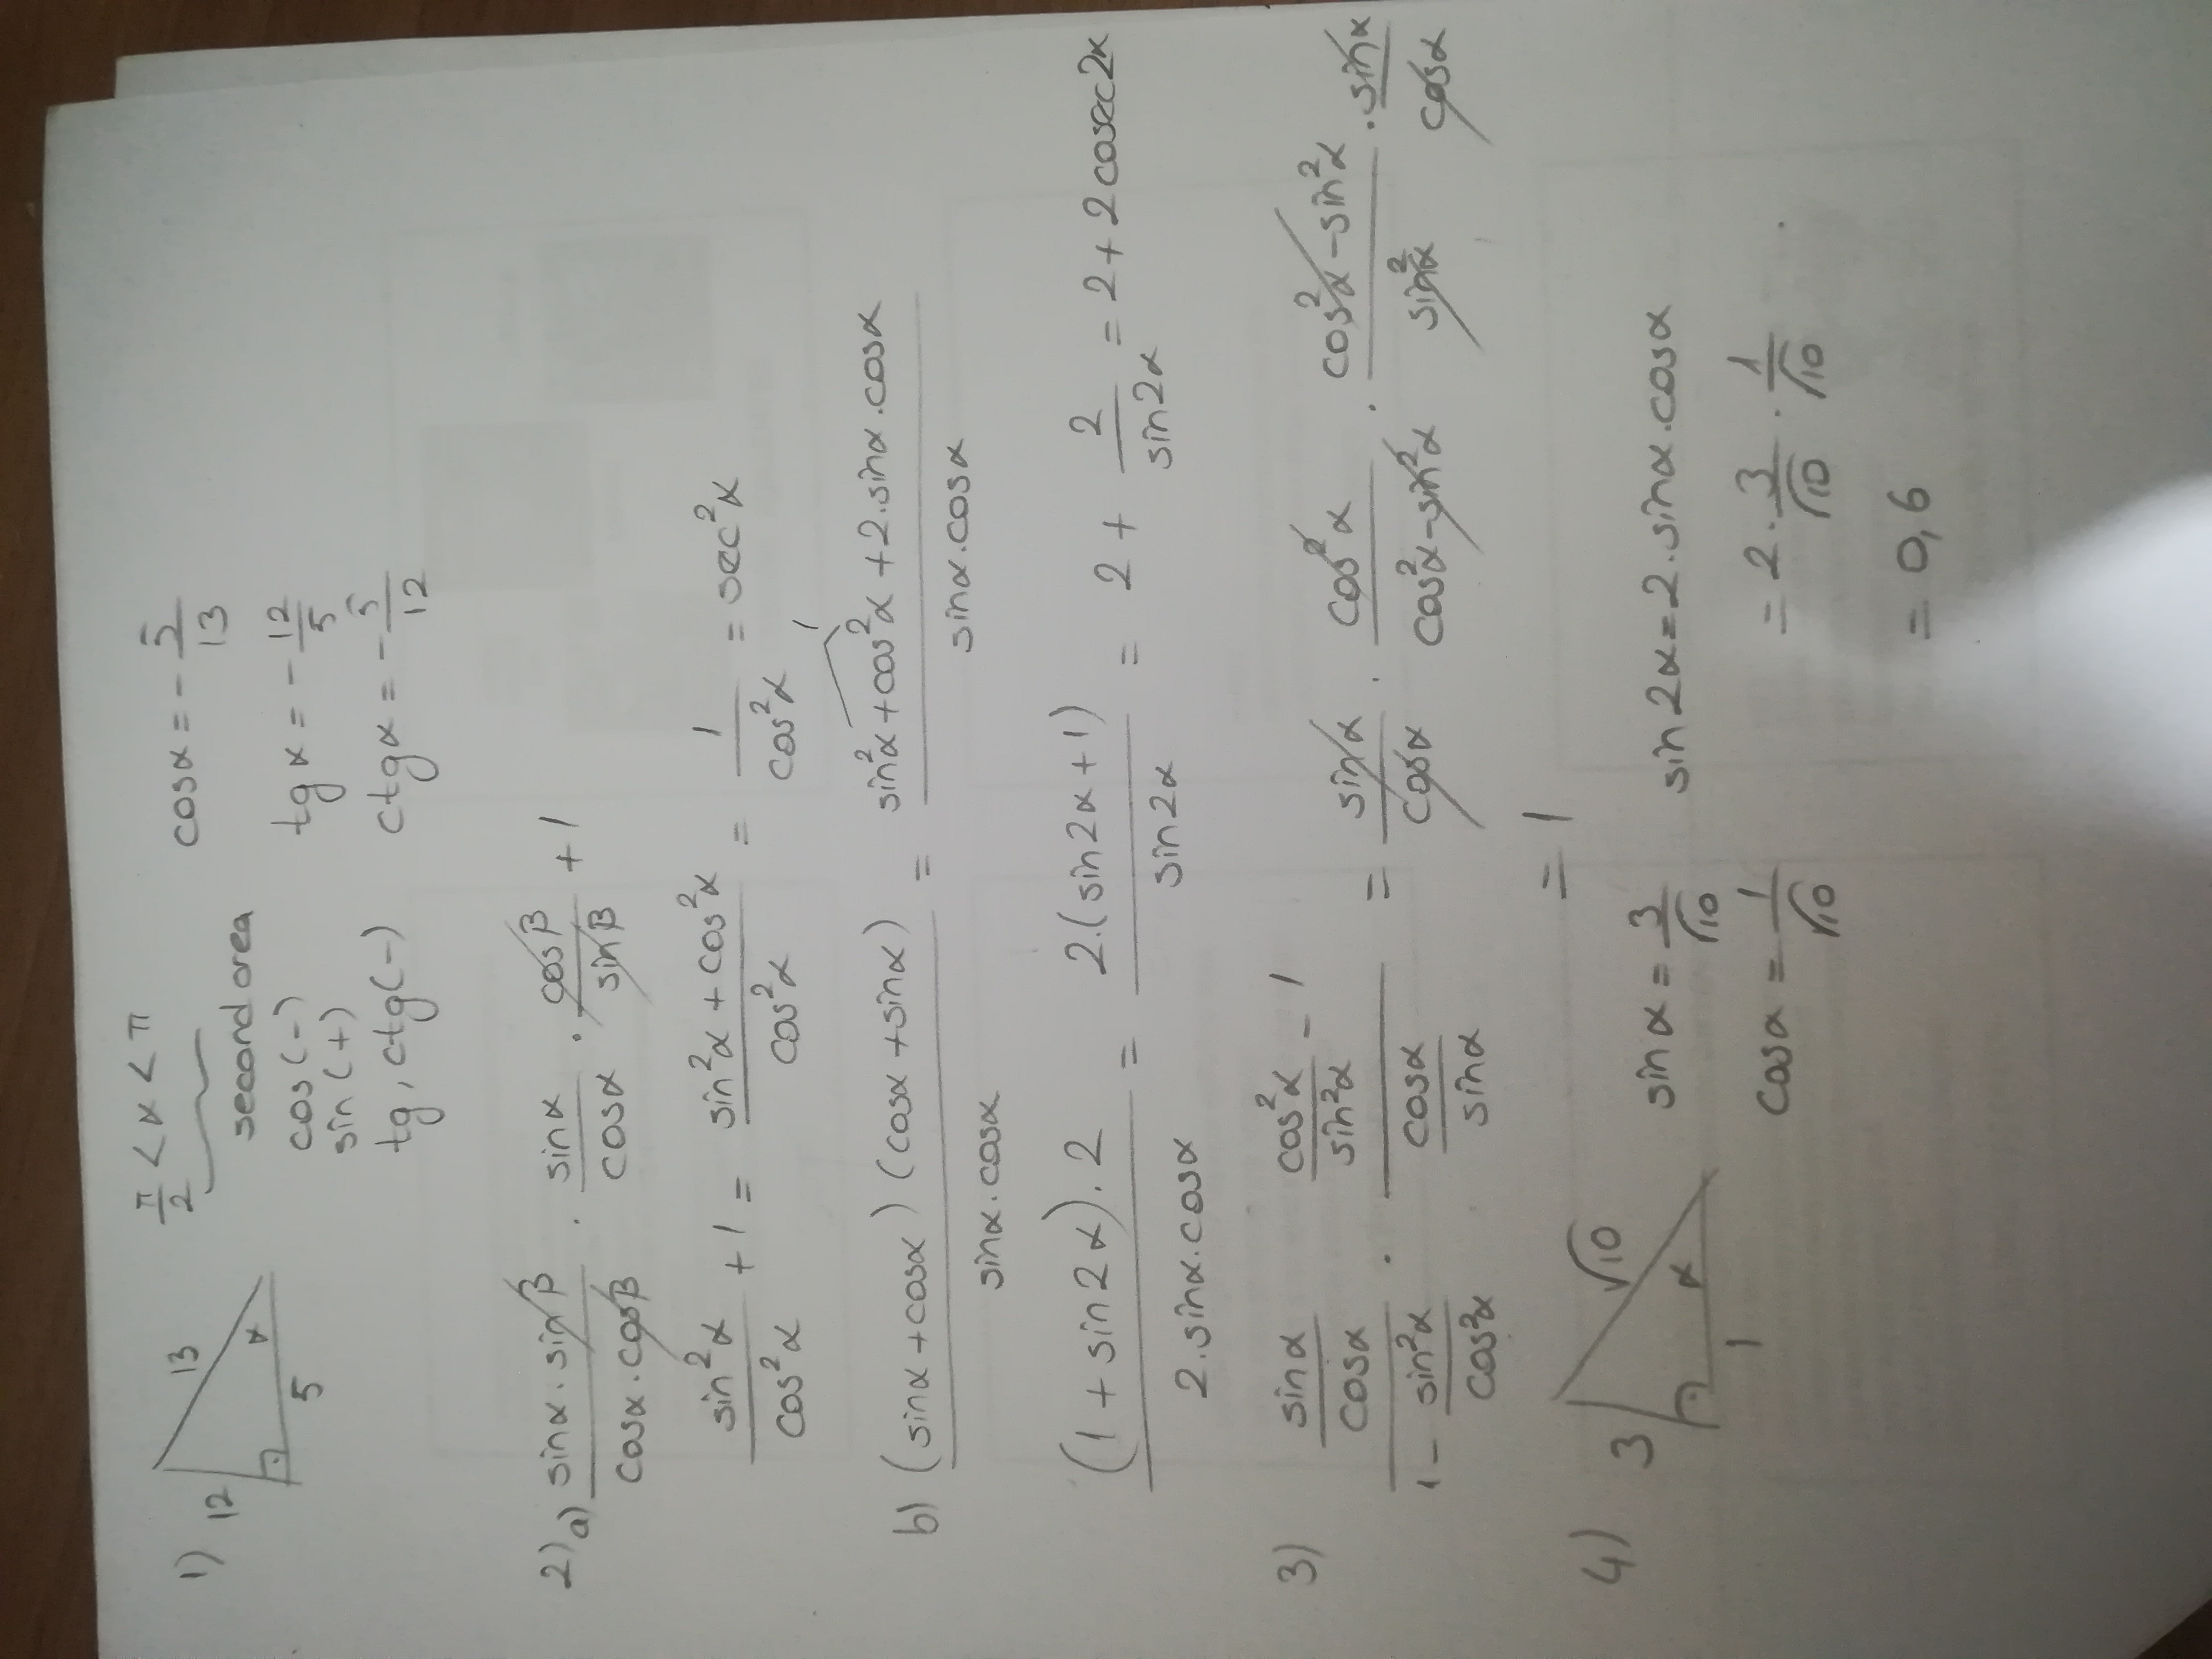 1) 12 13 5 α π/2 < α < π cosα = - 5/13
second area
cos(-) tgα = - 12/5
sin(+)
tg, ctg(-) ctgα = - 5/12
2) a) (sinα.sinβ)/(cosα.cosβ) . sinα/cosα . cosβ/sinβ + 1
sin²α/cos²α + 1 = (sin²α + cos²α)/cos²α = 1/cos²α = sec²α
b) ((sinα+cosα)(cosα+sinα))/(sinα.cosα) = (sin²α+cos²α+2.sinα.cosα)/(sinα.cosα) 1
((1+sin2α).2)/(2.sinα.cosα) = (2.(sin2α+1))/sin2α = 2 + 2/sin2α = 2+2cosec2α
3) (sinα/cosα)/(1 - sin²α/cos²α) . (cos²α/sin²α - 1)/(cosα/sinα) = sinα/cosα . cos²α/(cos²α-sin²α) . (cos²α-sin²α)/sin²α . sinα/cosα
= 1
4) 3 √10 1 α sinα = 3/√10 sin2α=2.sinα.cosα
cosα = 1/√10 = 2. 3/√10 . 1/√10
= 0,6